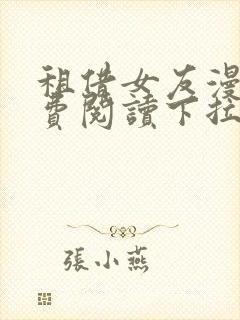 租借女友漫
費閱讀下拉
張小燕